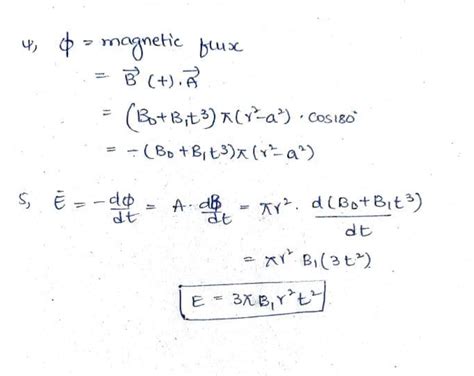 4, ϕ = magnetic flux
= B⃗ (t).A⃗
= (B₀+B₁t³)π(r²-a²) · cos180°
= -(B₀+B₁t³)π(r²-a²)
5, Ē = -dϕ/dt = A·dB/dt = πr². d(B₀+B₁t³)/dt
= πr² B₁(3t²)
E = 3πB₁r²t²